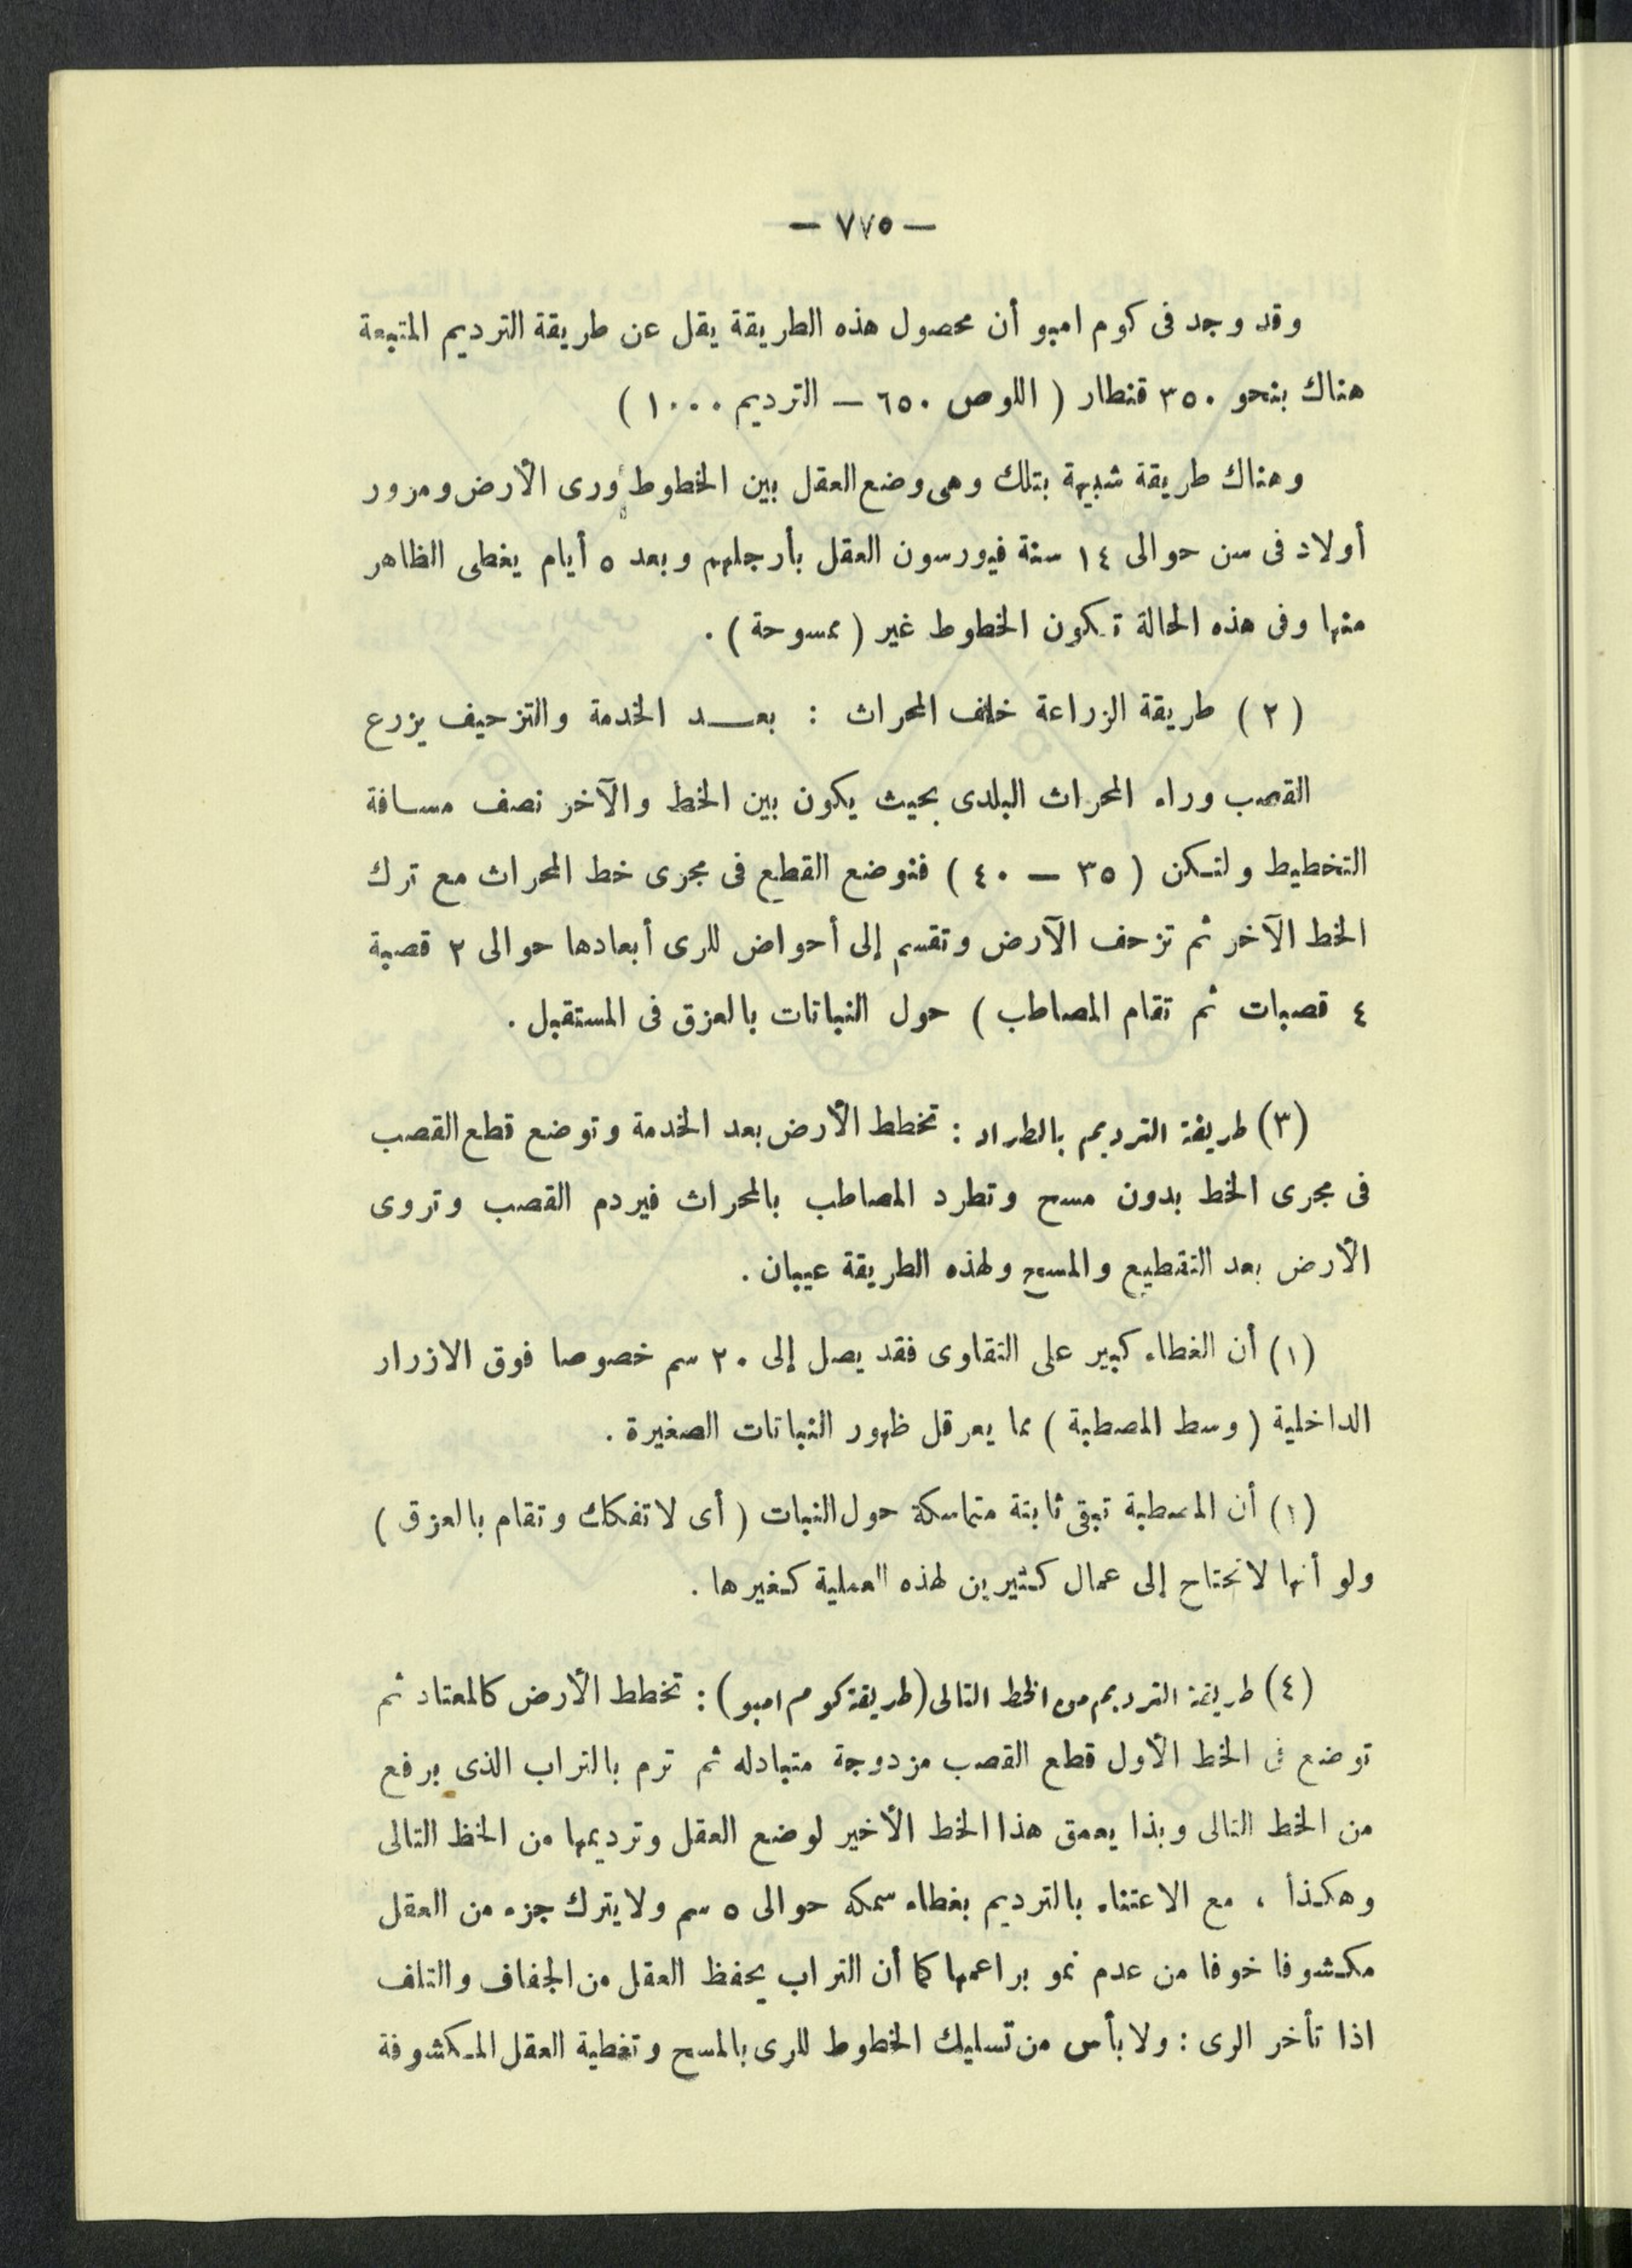 — ٧٧٥ —
وقد وجد فى كوم امبو أن محصول هذه الطريقة يقل عن طريقة الترديم المتبعة
هناك بنحو ٣٥٠ قنطار ( اللوص ٦٥٠ — الترديم ١٠٠٠ )
وهناك طريقة شبيهة بتلك وهى وضع العقل بين الخطوط ورى الأرض ومرور
أولاد فى سن حوالى ١٤ سنة فيورسون العقل بأرجلهم وبعد ٥ أيام يغطى الظاهر
منها وفى هذه الحالة تكون الخطوط غير ( ممسوحة ) .
( ٢ ) طريقة الزراعة خلف المحراث : بعد الخدمة والتزحيف يزرع
القصب وراء المحراث البلدى بحيث يكون بين الخط والآخر نصف مسافة
التخطيط ولتكن ( ٣٥ — ٤٠ ) فتوضع القطع فى مجرى خط المحراث مع ترك
الخط الآخر ثم تزحف الآرض وتقسم إلى أحواض للرى أبعادها حوالى ٢ قصبة
٤ قصبات ثم تقام المصاطب ) حول النباتات بالعزق فى المستقبل .
(٣) طريقة الترديم بالطراد : تخطط الأرض بعد الخدمة وتوضع قطع القصب
فى مجرى الخط بدون مسح وتطرد المصاطب بالمحراث فيردم القصب وتروى
الأرض بعد التقطيع والمسح ولهذه الطريقة عيبان .
(١) أن الغطاء كبير على التقاوى فقد يصل إلى ٢٠ سم خصوصا فوق الازرار
الداخلية ( وسط المصطبة ) مما يعرقل ظهور النباتات الصغيرة .
(١) أن المصطبة تبقى ثابتة متماسكة حول النبات ( أى لا تفكك وتقام بالعزق )
ولو أنها لا تحتاج إلى عمال كثيرين لهذه العملية كغيرها .
(٤) طريقة الترديم من الخط التالى (طريقة كوم امبو) : تخطط الأرض كالمعتاد ثم
توضع فى الخط الأول قطع القصب مزدوجة متبادله ثم ترم بالتراب الذى يرفع
من الخط التالى وبذا يعمق هذا الخط الأخير لوضع العقل وترديمها من الخظ التالى
وهكذا ، مع الاعتناء بالترديم بغطاء سمكه حوالى ٥ سم ولا يترك جزء من العقل
مكشوفا خوفا من عدم نمو براعمها كما أن التراب يحفظ العقل من الجفاف والتلف
اذا تأخر الرى : ولا بأس من تسليك الخطوط للرى بالمسح وتغطية العقل المكشوفة